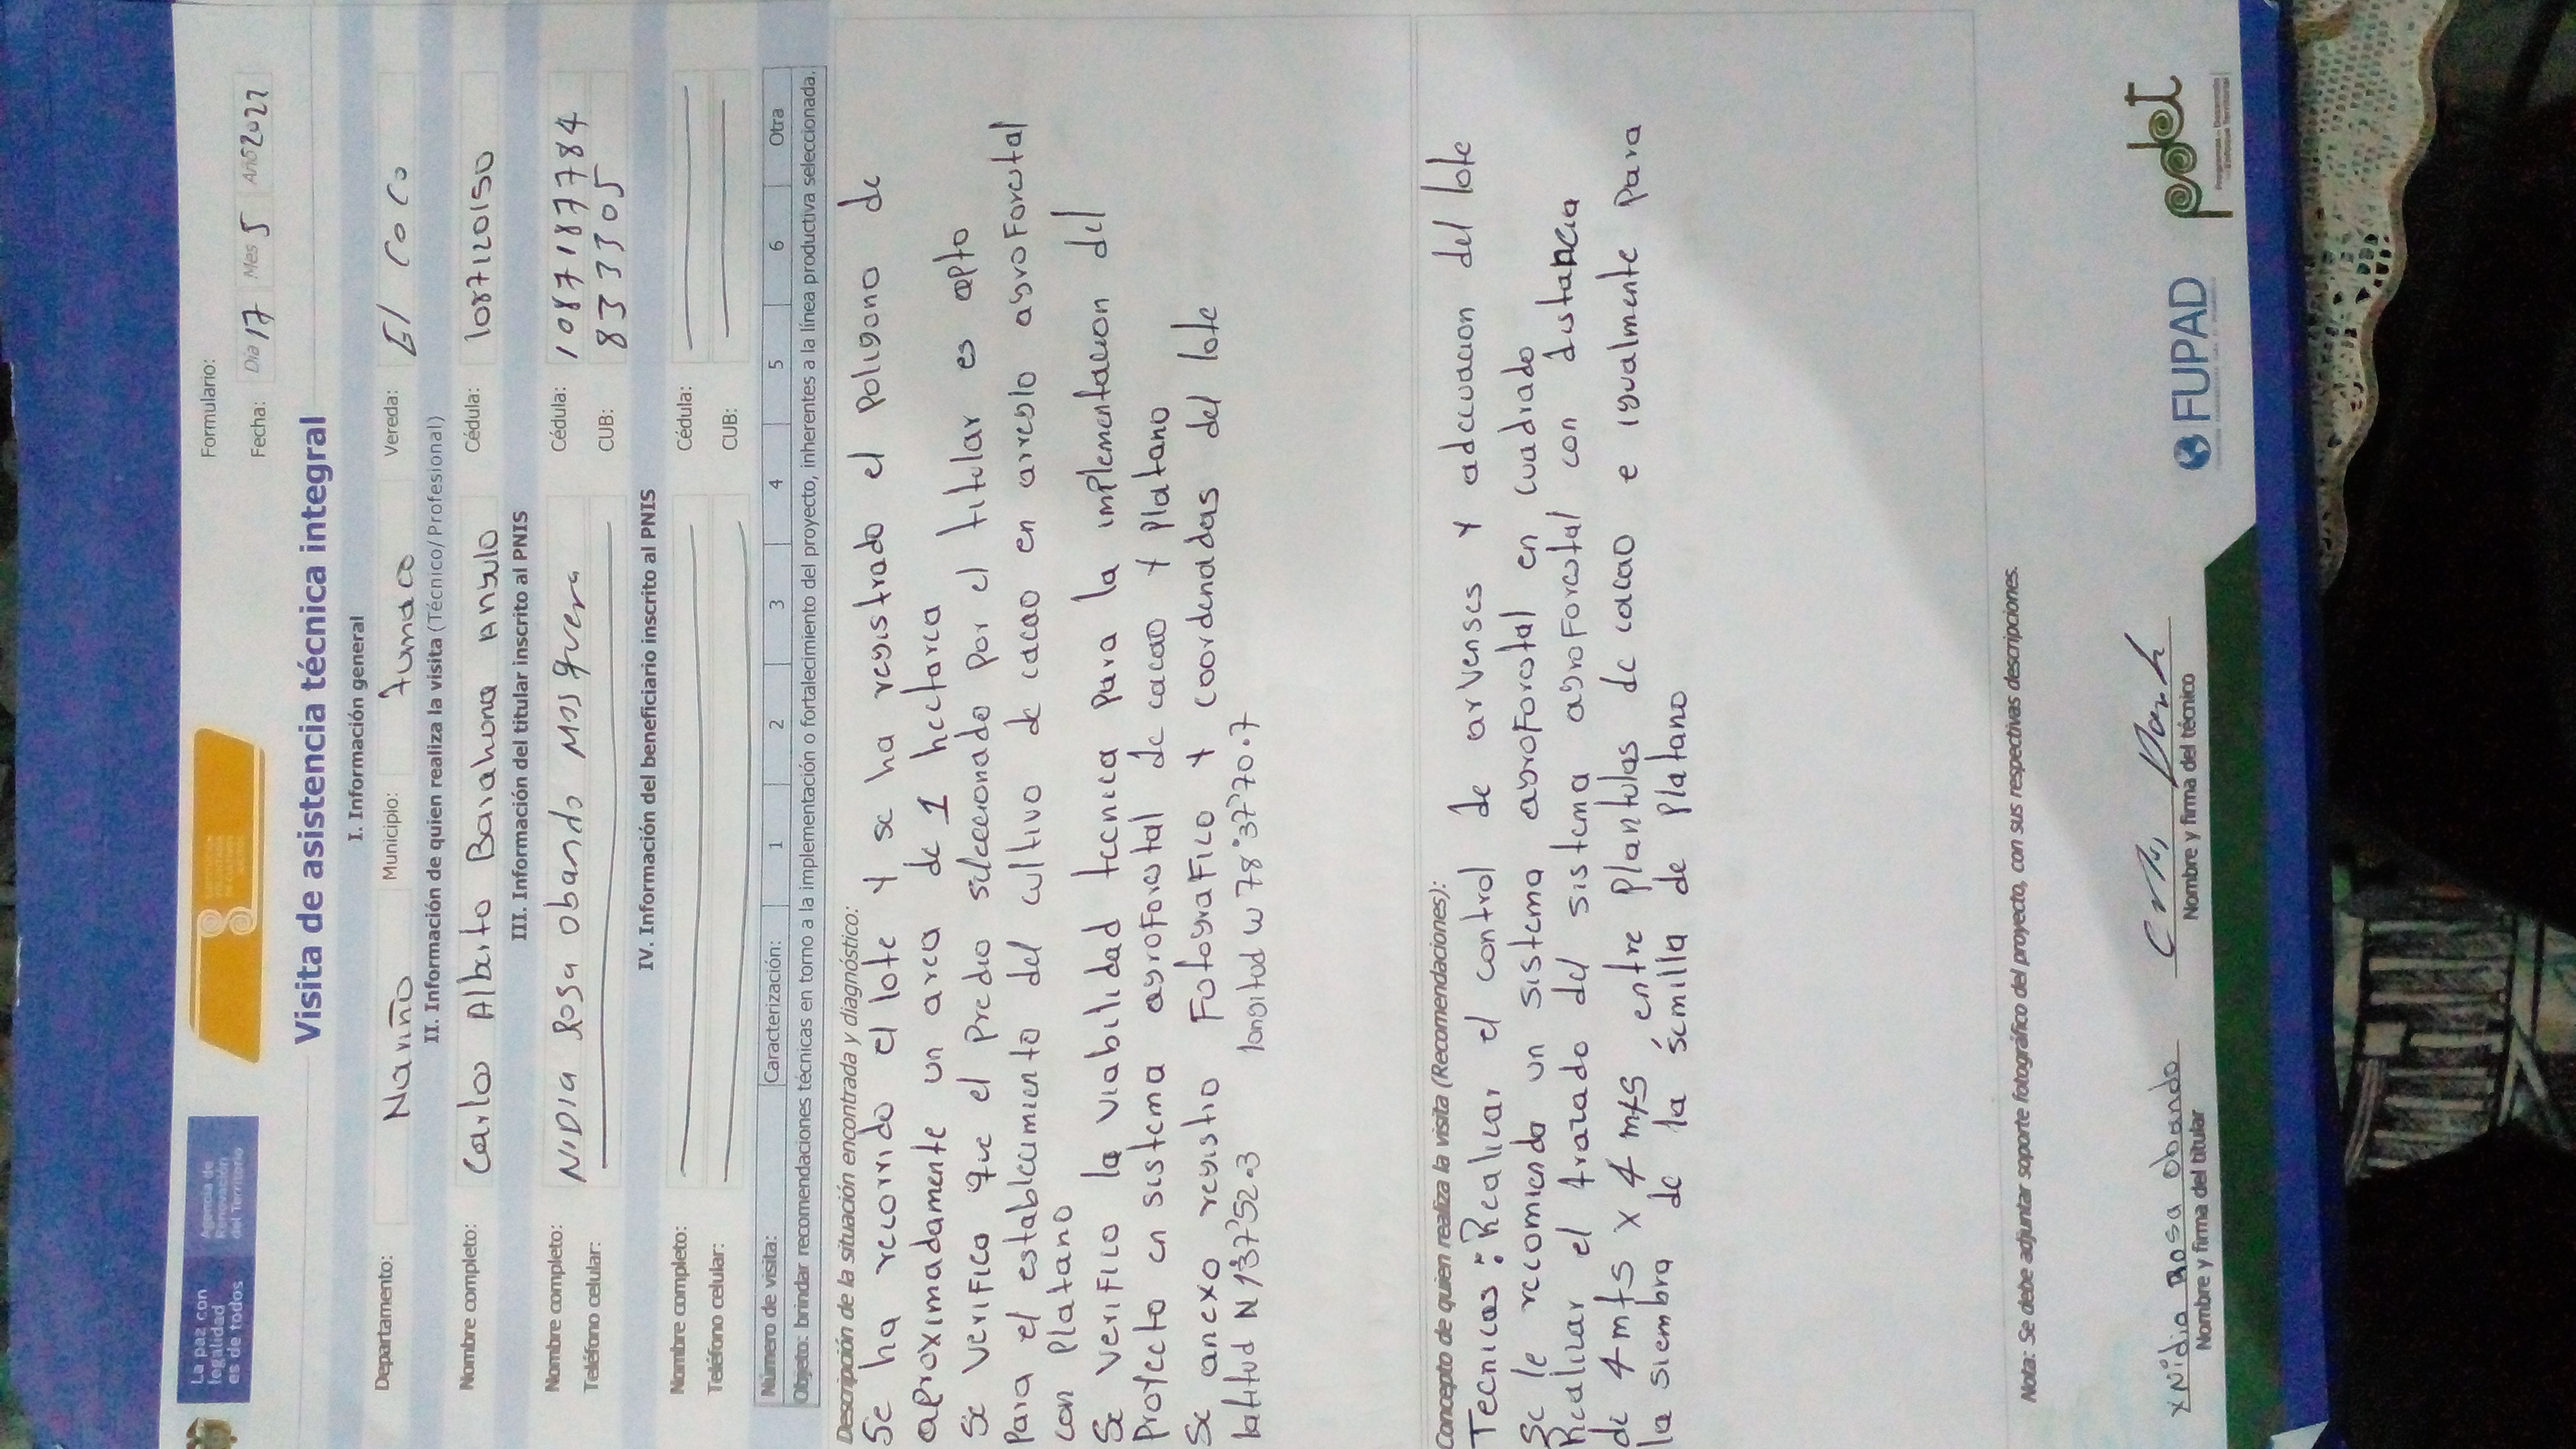 La paz con
legalidad
es de todos
Agencia de
Renovación
del Territorio
Formulario:
Fecha: Día 17 Mes 5 Año 2021
Visita de asistencia técnica integral
I. Información general
Departamento: Nariño Municipio: tumaco Vereda: El COCO
II. Información de quien realiza la visita (Técnico/Profesional)
Nombre completo: Carlos Alberto Barahona Angulo Cédula: 1087120150
III. Información del titular inscrito al PNIS
Nombre completo: NIDIA ROSA Obando MOSquera Cédula: 1087187784
Teléfono celular: CUB: 8333305
IV. Información del beneficiario inscrito al PNIS
Nombre completo: Cédula:
Teléfono celular: CUB:
Número de visita: Caracterización: 1 2 3 4 5 6 Otra
Objeto: brindar recomendaciones técnicas en torno a la implementación o fortalecimiento del proyecto, inherentes a la línea productiva seleccionada.
Descripción de la situación encontrada y diagnóstico:
Se ha recorrido el lote y se ha registrado el Poligono de
aproximadamente un area de 1 hectarea
Se verifico que el Predio seleccionado Por el titular es apto
Para el establecimiento del cultivo de cacao en arreglo agroForestal
con Platano
Se verifico la viabilidad tecnica Para la implementacion del
Proyecto en sistema agroForestal de cacao y Platano
Se anexo registro FotograFico y coordenadas del lote
latitud N 1°37'52.3 longitud W 78°37'70.7
Concepto de quien realiza la visita (Recomendaciones):
Tecnicas: Realizar el control de arvenses y adecuacion del lote
Se le recomienda un sistema agroForestal en cuadrado
Realizar el trazado del sistema agroForestal con distancia
de 4 mts x 4 mts entre Plantulas de cacao e igualmente Para
la siembra de la semilla de Platano
Nota: Se debe adjuntar soporte fotográfico del proyecto, con sus respectivas descripciones.
x Nidia Rosa Obando
Nombre y firma del titular
Nombre y firma del técnico
FUPAD
pdet